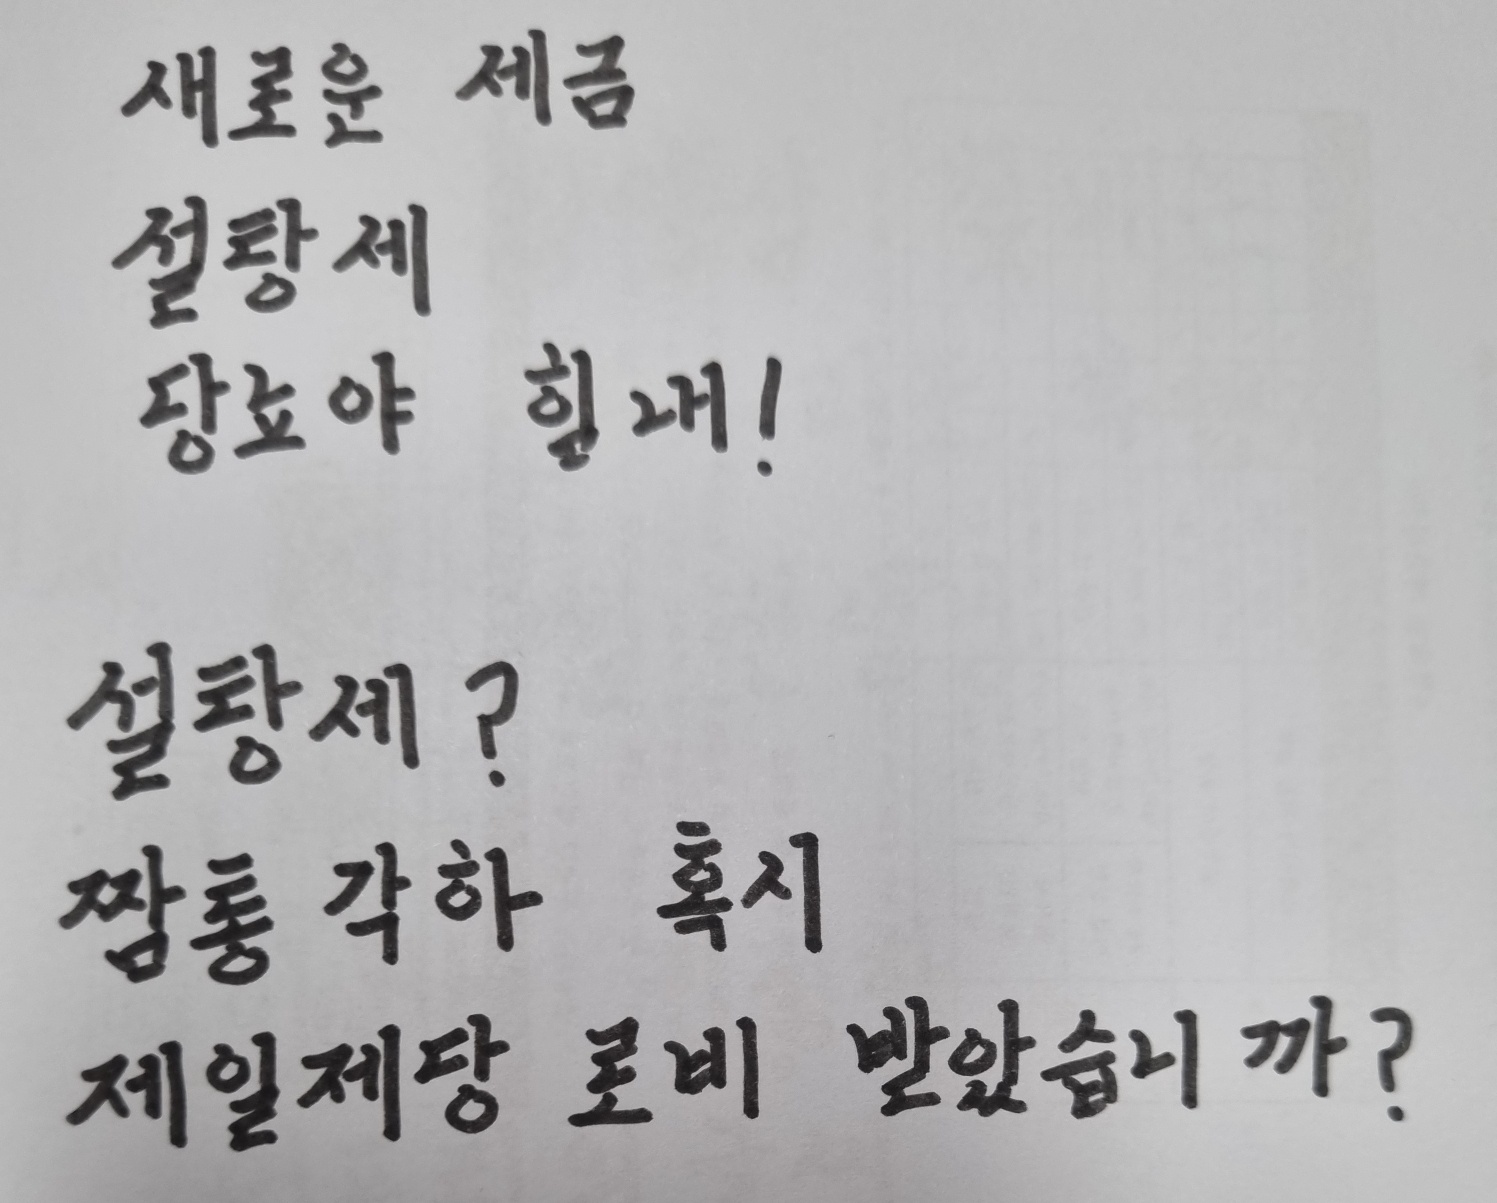 새로운 세금
설탕세
당뇨야 힘내!
설탕세?
짬통 각하 혹시
제일제당 로비 받았습니까?